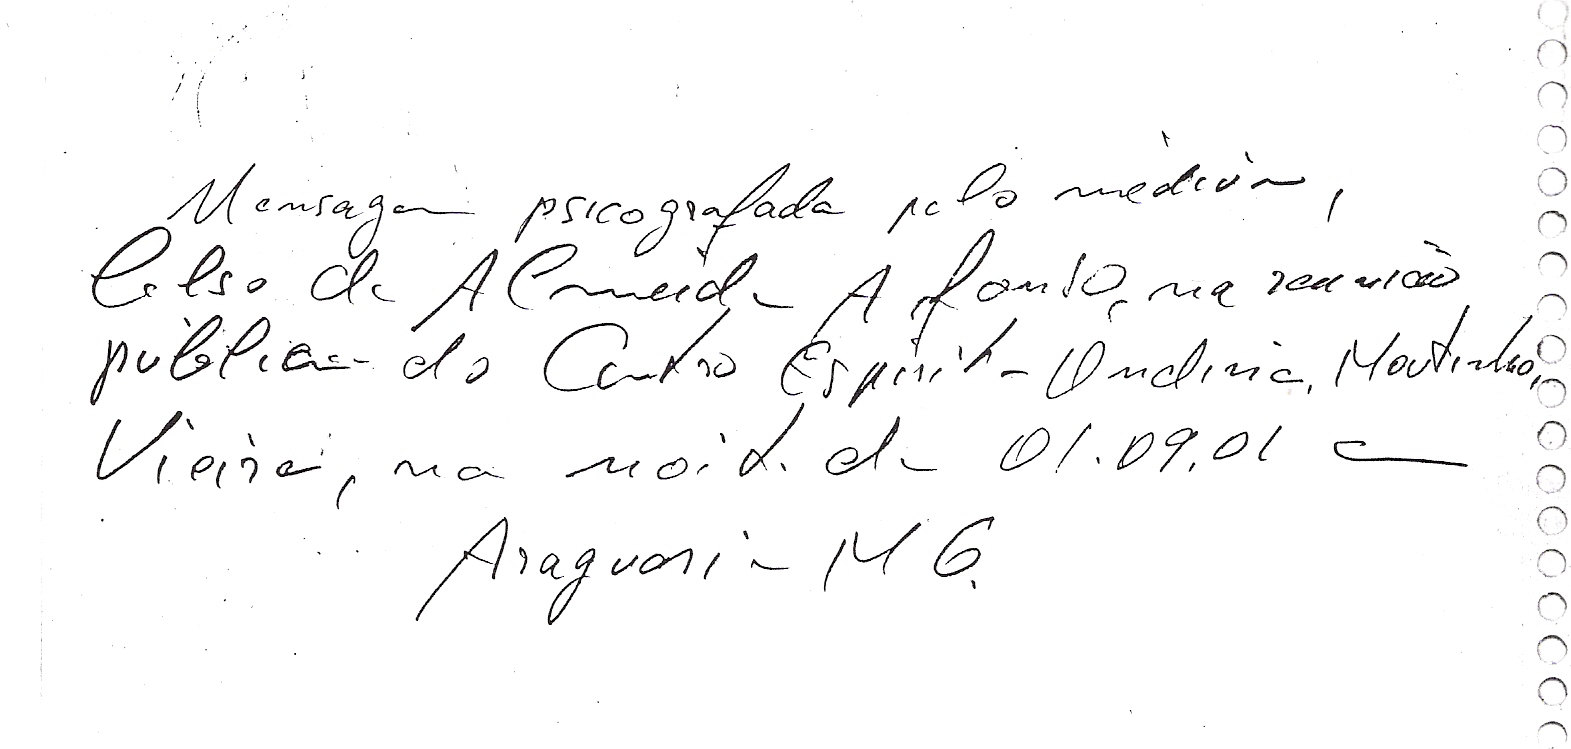 Mensagem psicografada pelo médium,
Celso de Almeida Afonso, na reunião
pública do Centro Espírita Ondina, Moutinho,
Vieira, na noite de 01.09.01 em
Araguari - MG.